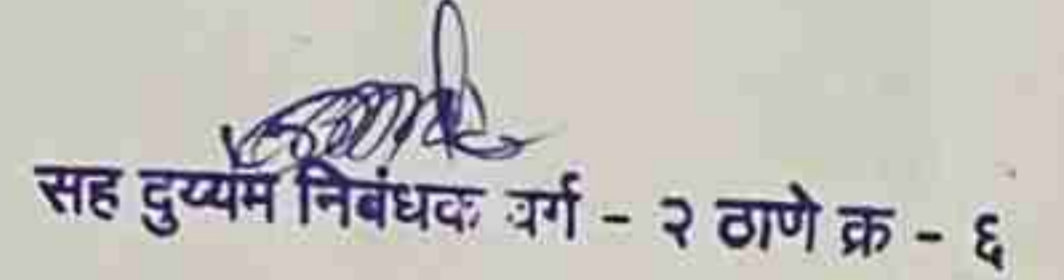 सह दुय्यम निबंधक वर्ग - २ ठाणे क्र - ६